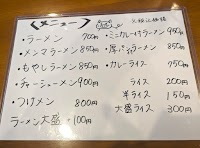 〈メニュー〉
・ラーメン 700円
・メンマラーメン 850円
・もやしラーメン 850円
・チャーシューメン 900円
・つけメン 800円
ラーメン大盛 +100円
・ミニカレー付ラーメン 950円
ラーメン 850円
・カレーライス 750円
ライス 200円
半ライス 150円
大盛ライス 300円